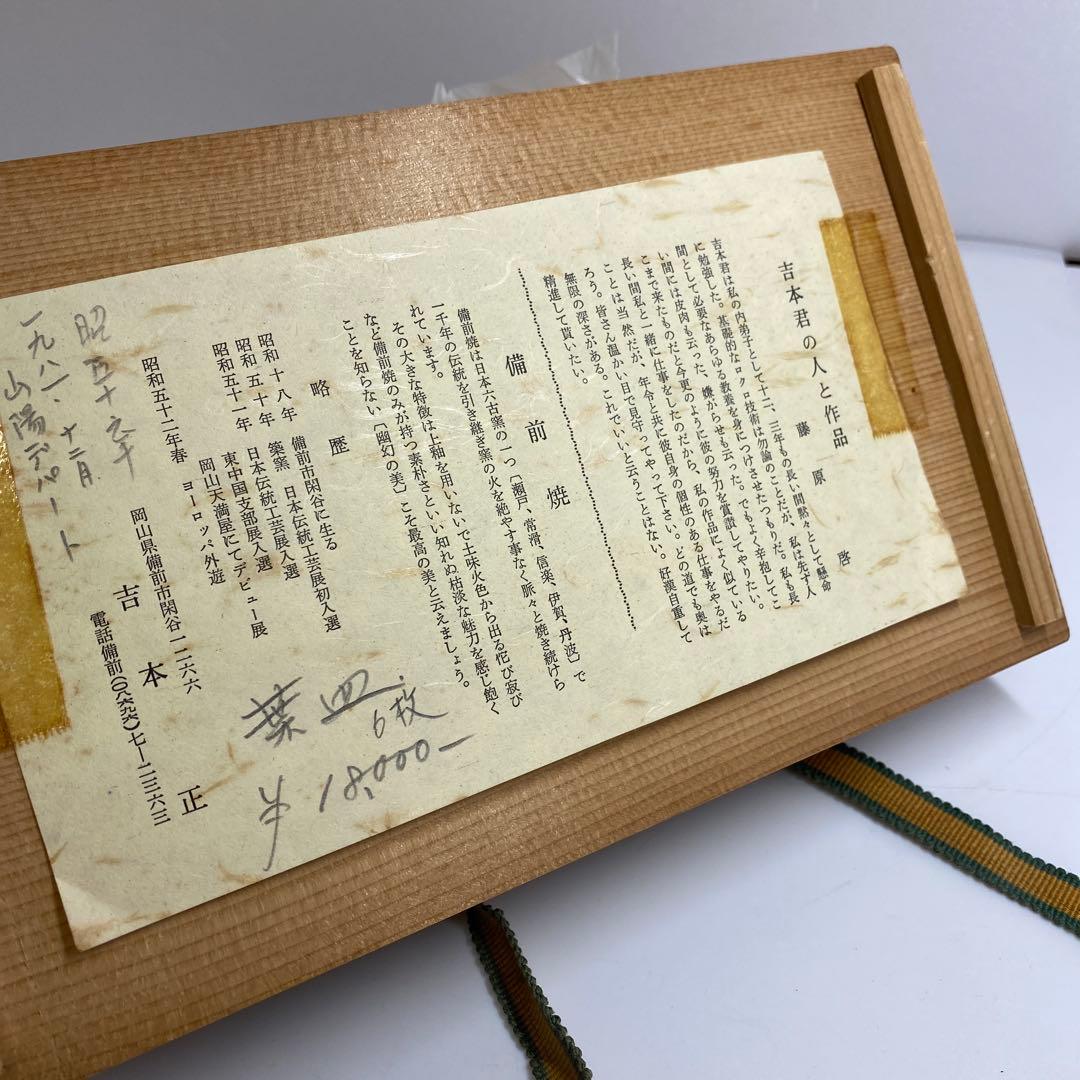 吉本君の人と作品
藤原 啓
吉本君は私の内弟子として十二、三年もの長い間黙々として懸命
に勉強した。基礎的なロクロ技術は勿論のことだが、私は先ず人
間として必要なあらゆる教養を身につけさせたつもりだ。私も長
い間には皮肉も云った、嫌がらせも云った。でもよく辛抱してこ
こまで来たものだと今更のように彼の努力を賞讃してやりたい。
長い間私と一緒に仕事をしたのだから、私の作品によく似ている
ことは当然だが、年令と共に彼自身の個性のある仕事をやるだ
ろう。皆さん温かい目で見守ってやって下さい。どの道でも奥は
無限の深さがある。これでいいと云うことはない。好漢自重して
精進して貰いたい。
備前焼
備前焼は日本六古窯の一つ〔瀬戸、常滑、信楽、伊賀、丹波〕で
一千年の伝統を引き継ぎ窯の火を絶やす事なく脈々と焼き続けら
れています。
その大きな特徴は上釉を用いないで土味火色から出る佗び寂び
など備前焼のみが持つ素朴さといい知れぬ枯淡な魅力を感じ飽く
ことを知らない〔幽幻の美〕こそ最高の美と云えましょう。
略歴
昭和十八年 備前市閑谷に生る
昭和五十年 築窯 日本伝統工芸展初入選
昭和五十一年 日本伝統工芸展入選
東中国支部展入選
岡山天満屋にてデビュー展
昭和五十二年春 ヨーロッパ外遊
岡山県備前市閑谷一二六六
吉本 正
電話備前(〇八六九六)七―二三六三
葉皿 6枚
¥18,000-
昭五十六年
一九八一、十二月
山陽デパート